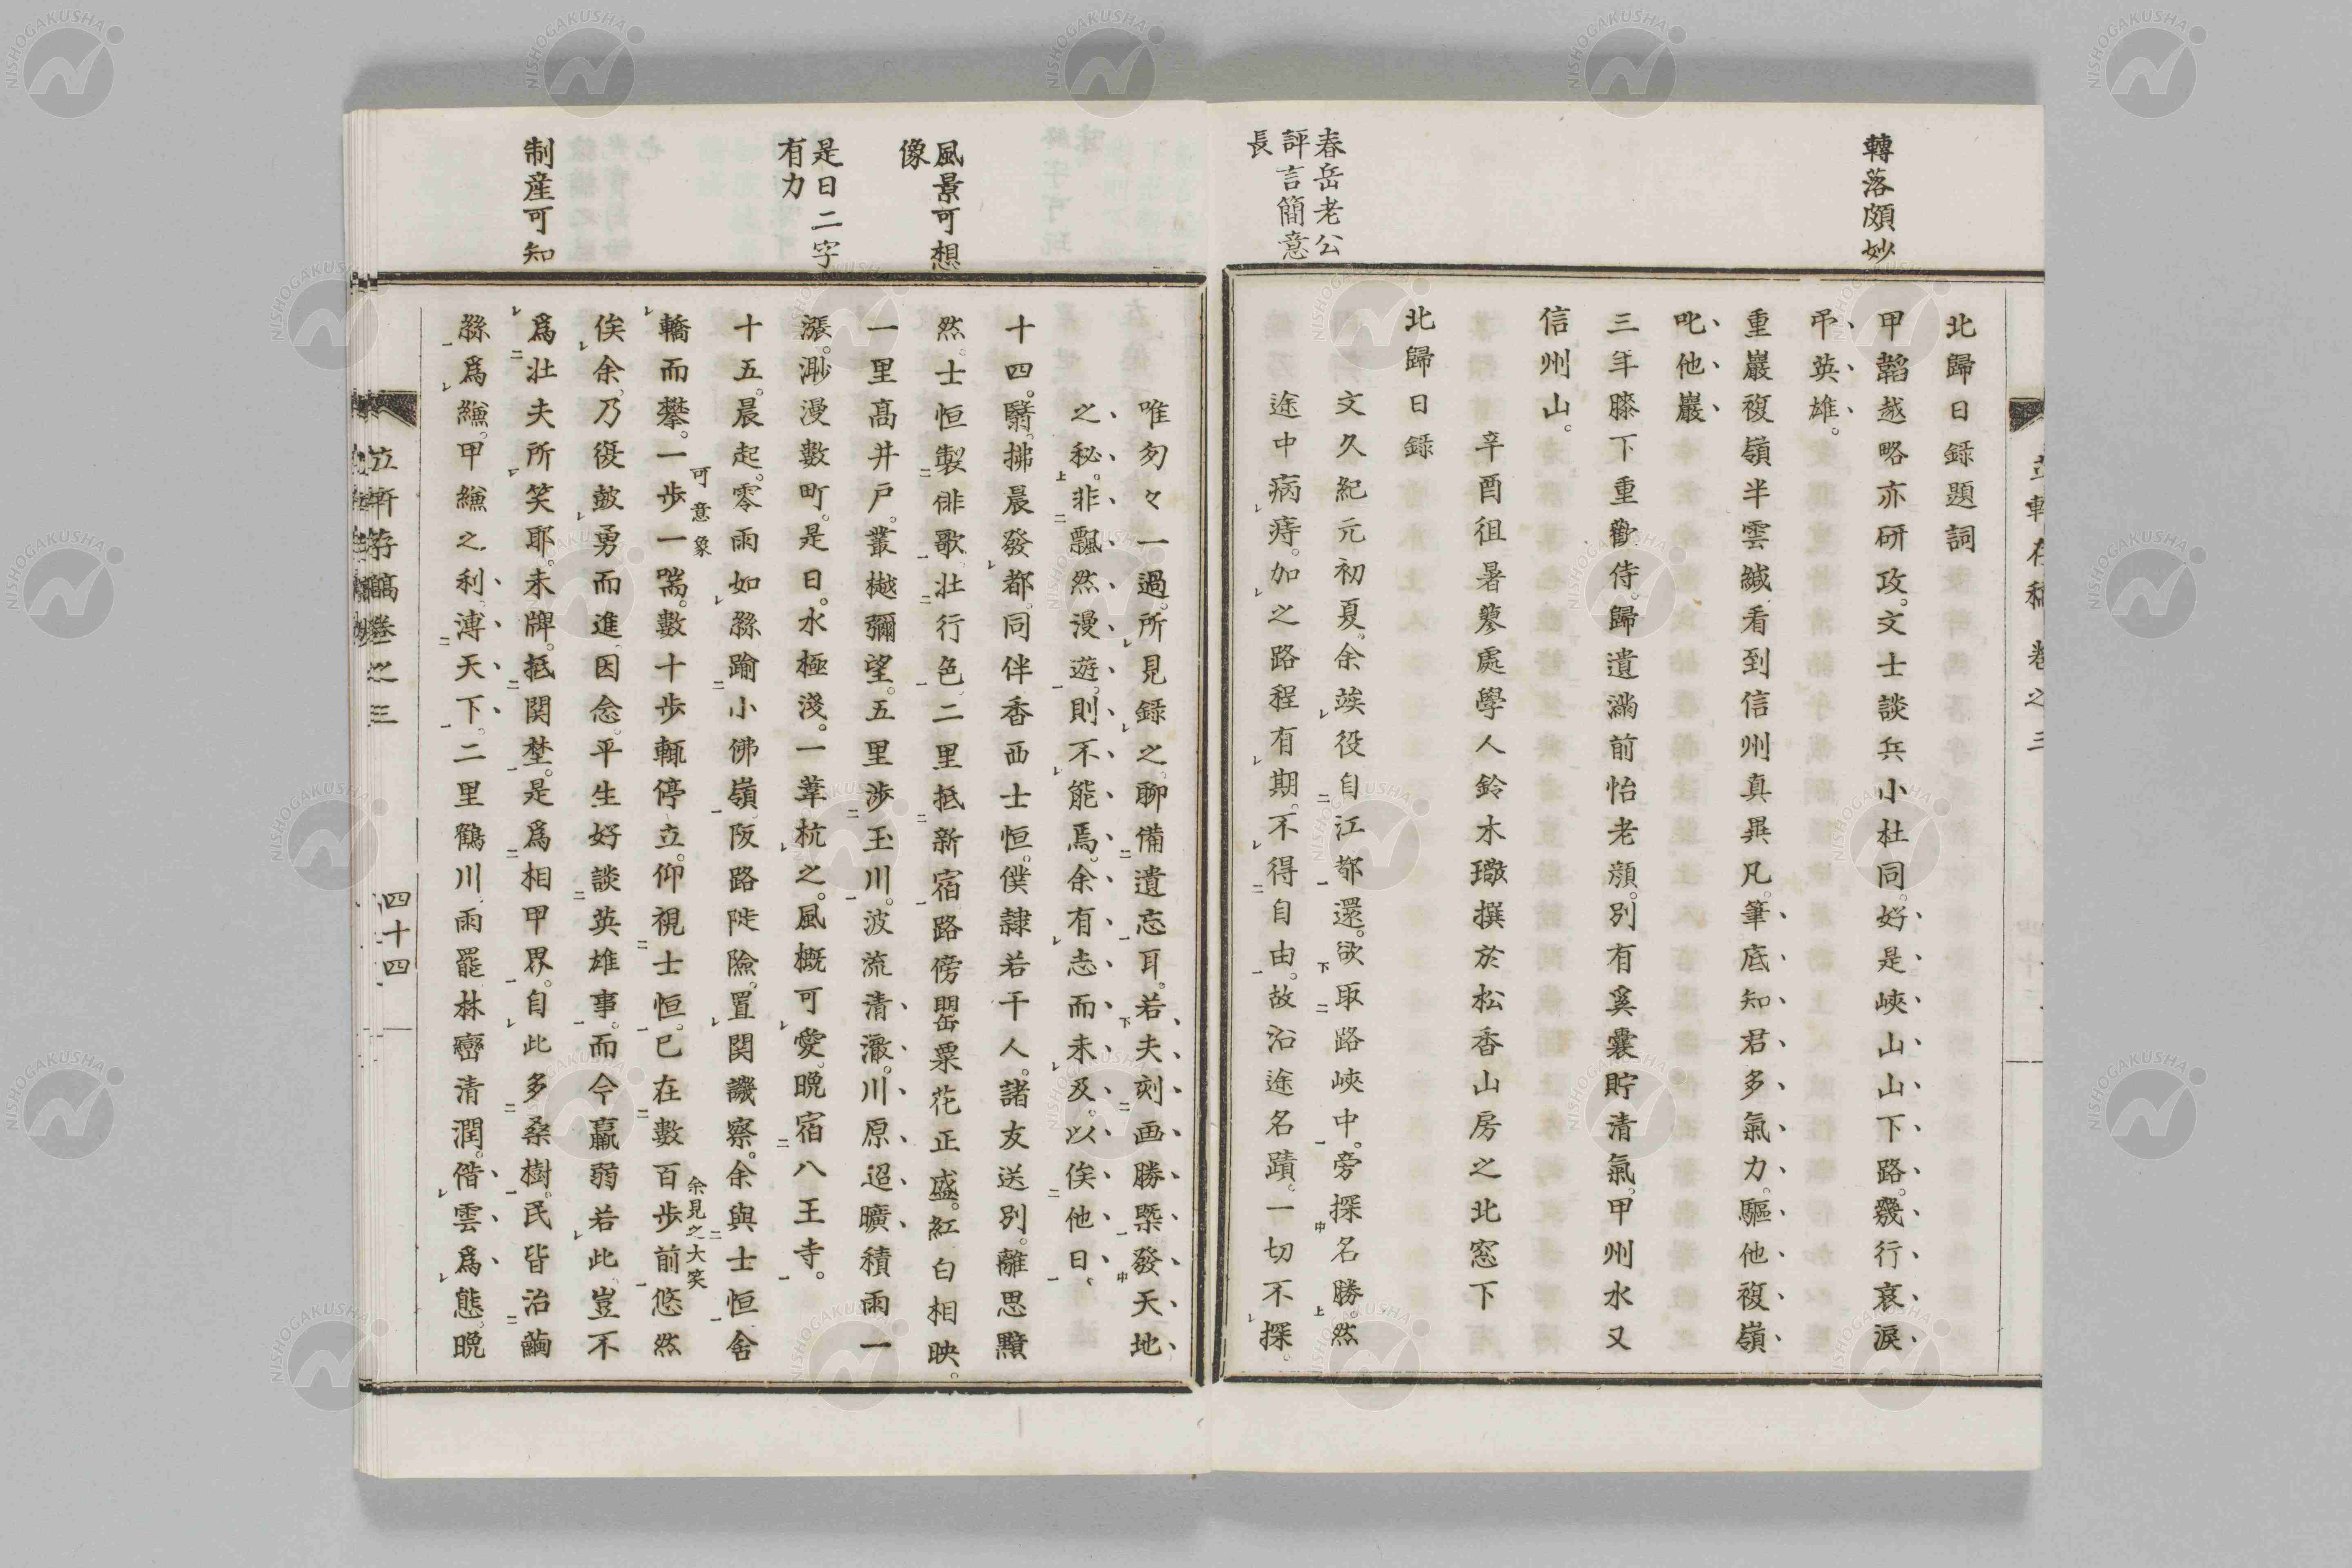 轉落頗妙
春岳老公
評言簡意
長
北歸日録題詞
甲韜越略亦研攻。文士談兵小杜同。好是峽山山下路。幾行哀淚
弔英雄。
重巖複嶺半雲緘。看到信州真異凡。筆底知君多氣力。驅他複嶺
叱他巖
三年膝下重歡侍。歸遺滿前怡老顏。別有奚囊貯清氣。甲州水又
信州山。
辛酉徂暑蓼處學人鈴木璥撰於松香山房之北窓下
北歸日録
文久紀元初夏。余竢役自江都還。欲取路峽中。旁探名勝。然
途中病痔。加之路程有期。不得自由。故沿途名蹟。一切不探。
唯匆々一過。所見錄之。聊備遺忘耳。若夫刻画勝槩發天地
之秘。非飄然漫遊。則不能焉。余有志而未及。以俟他日、
風景可想
像
是日二字
有力
制産可知
十四。翳。拂晨發都。同伴香西士恒。僕隷若干人。諸友送別。離思黯
然。士恒製俳歌壯行色。二里抵新宿路傍罌粟花正盛。紅白相映。
一里高井戸。叢樾彌望。五里渉玉川。波流清澈。川原迢曠積雨一
漲。渺漫數町。是日。水極淺。一葦杭之。風概可愛。晩宿八王寺。
十五。晨起。零雨如絲踰小佛嶺。阪路陡險。置関譏察。余與士恒舍
轎而攀。一歩一喘。數十歩輒停立。仰視士恒。已在數百歩前悠然
可意象
余見之大笑
俟余。乃復鼓勇而進。因念。平生好談英雄事。而今羸弱若此。豈不
爲壯夫所笑耶。未牌。抵関埜。是爲相甲界。自此多桑樹。民皆治繭
絲爲縑。甲縑之利。溥天下。二里鶴川。雨罷林巒清潤。偕雲爲態。晩
立軒存稿卷之三
四十四